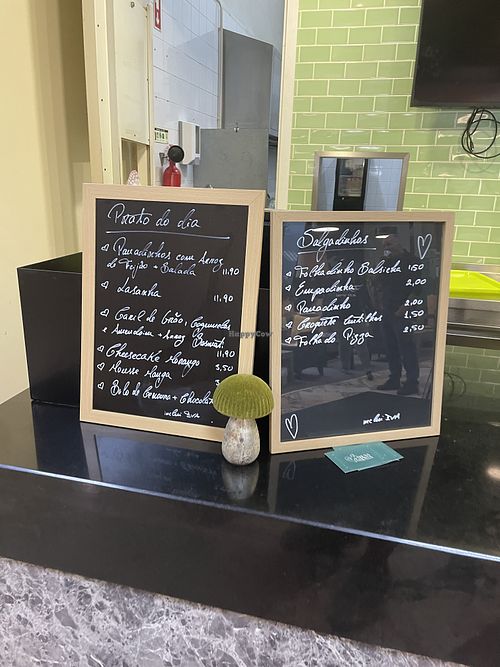 Prato do dia
Panadinhos com Arroz
de Feijão + Salada 11,90
Lasanha
11,90
Caril de Grão, Cogumelos
e Amendoim + Arroz Basmati
11,90
Cheesecake Morango
3,50
Mousse Manga
3
Bolo de Cenoura + Chocola
inclui IVA
Salgadinhos
Folhadinho Salsicha 1,50
Empadinha 2,00
Panadinho 2,00
Croquete lentilhas 2,50
Folhado Pizza 2,50
inclui IVA
HappyCow